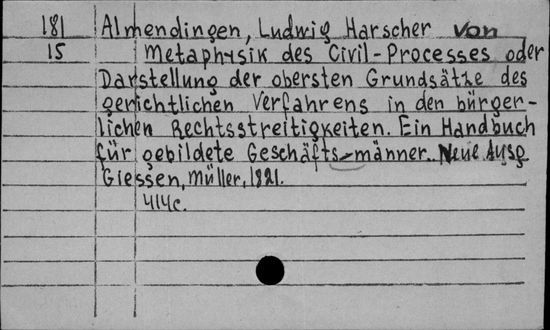 181 Almendingen, Ludwig Harscher von
15 Metaphysik des Civil-Processes oder
Darstellung der obersten Grundsätze des
gerichtlichen Verfahrens in den bürger-
lichen Rechtsstreitigkeiten. Ein Handbuch
für gebildete Geschäfts-männer. Neue Ausg
Giessen, Müller, 1821.
414c.